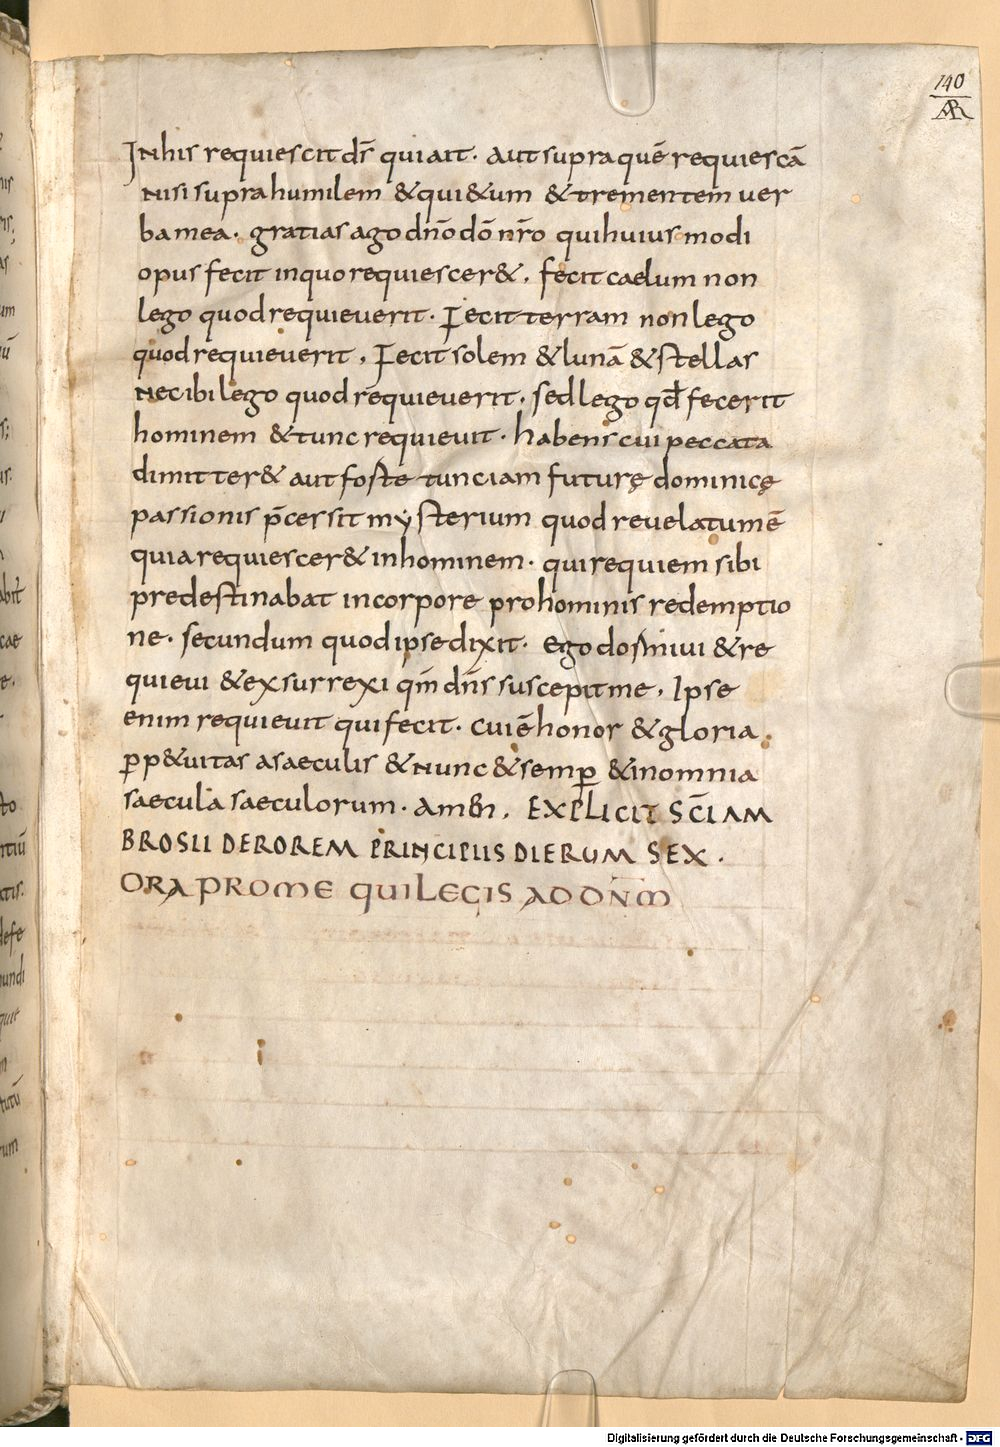 140
AR
Inhis requiescit dr̄ qui ait · aut supra quē requiescā
nisi supra humilem &qui&um &trementem ver
ba mea · gratias ago dn̄o dō nr̄o qui huius modi
opus fecit in quo requiescer& , fecit caelum non
lego quod requieverit · Fecit terram non lego
quod requieverit , Fecit solem &lunā & stellas
nec ibi lego quod requieverit , sed lego qđ fecerit
hominem &tunc requievit · habens cui peccata
dimitter& aut foste tunc iam futurę dominicę
passionis p̄cersit mẏsterium quod revelatumē
quia requiescer& in hominem · qui requiem sibi
predestinabat in corpore pro hominis redemptio
ne · secundum quod ipse dixit · ego dormivi &re
quievi & exsurrexi qm̄ dn̄s suscepit me , Ipse
enim requievit qui fecit · cui ē honor & gloria ,
ꝑp&uitas a saeculis &nunc &semꝑ &in omnia
saecula saeculorum · amen , EXPLICIT SC̄I AM
BROSII DE ROREM PRINCIPIIS DIERUM SEX ·
ORA PRO ME QUI LEGIS AD DN̄M
Digitalisierung gefördert durch die Deutsche Forschungsgemeinschaft - DFG